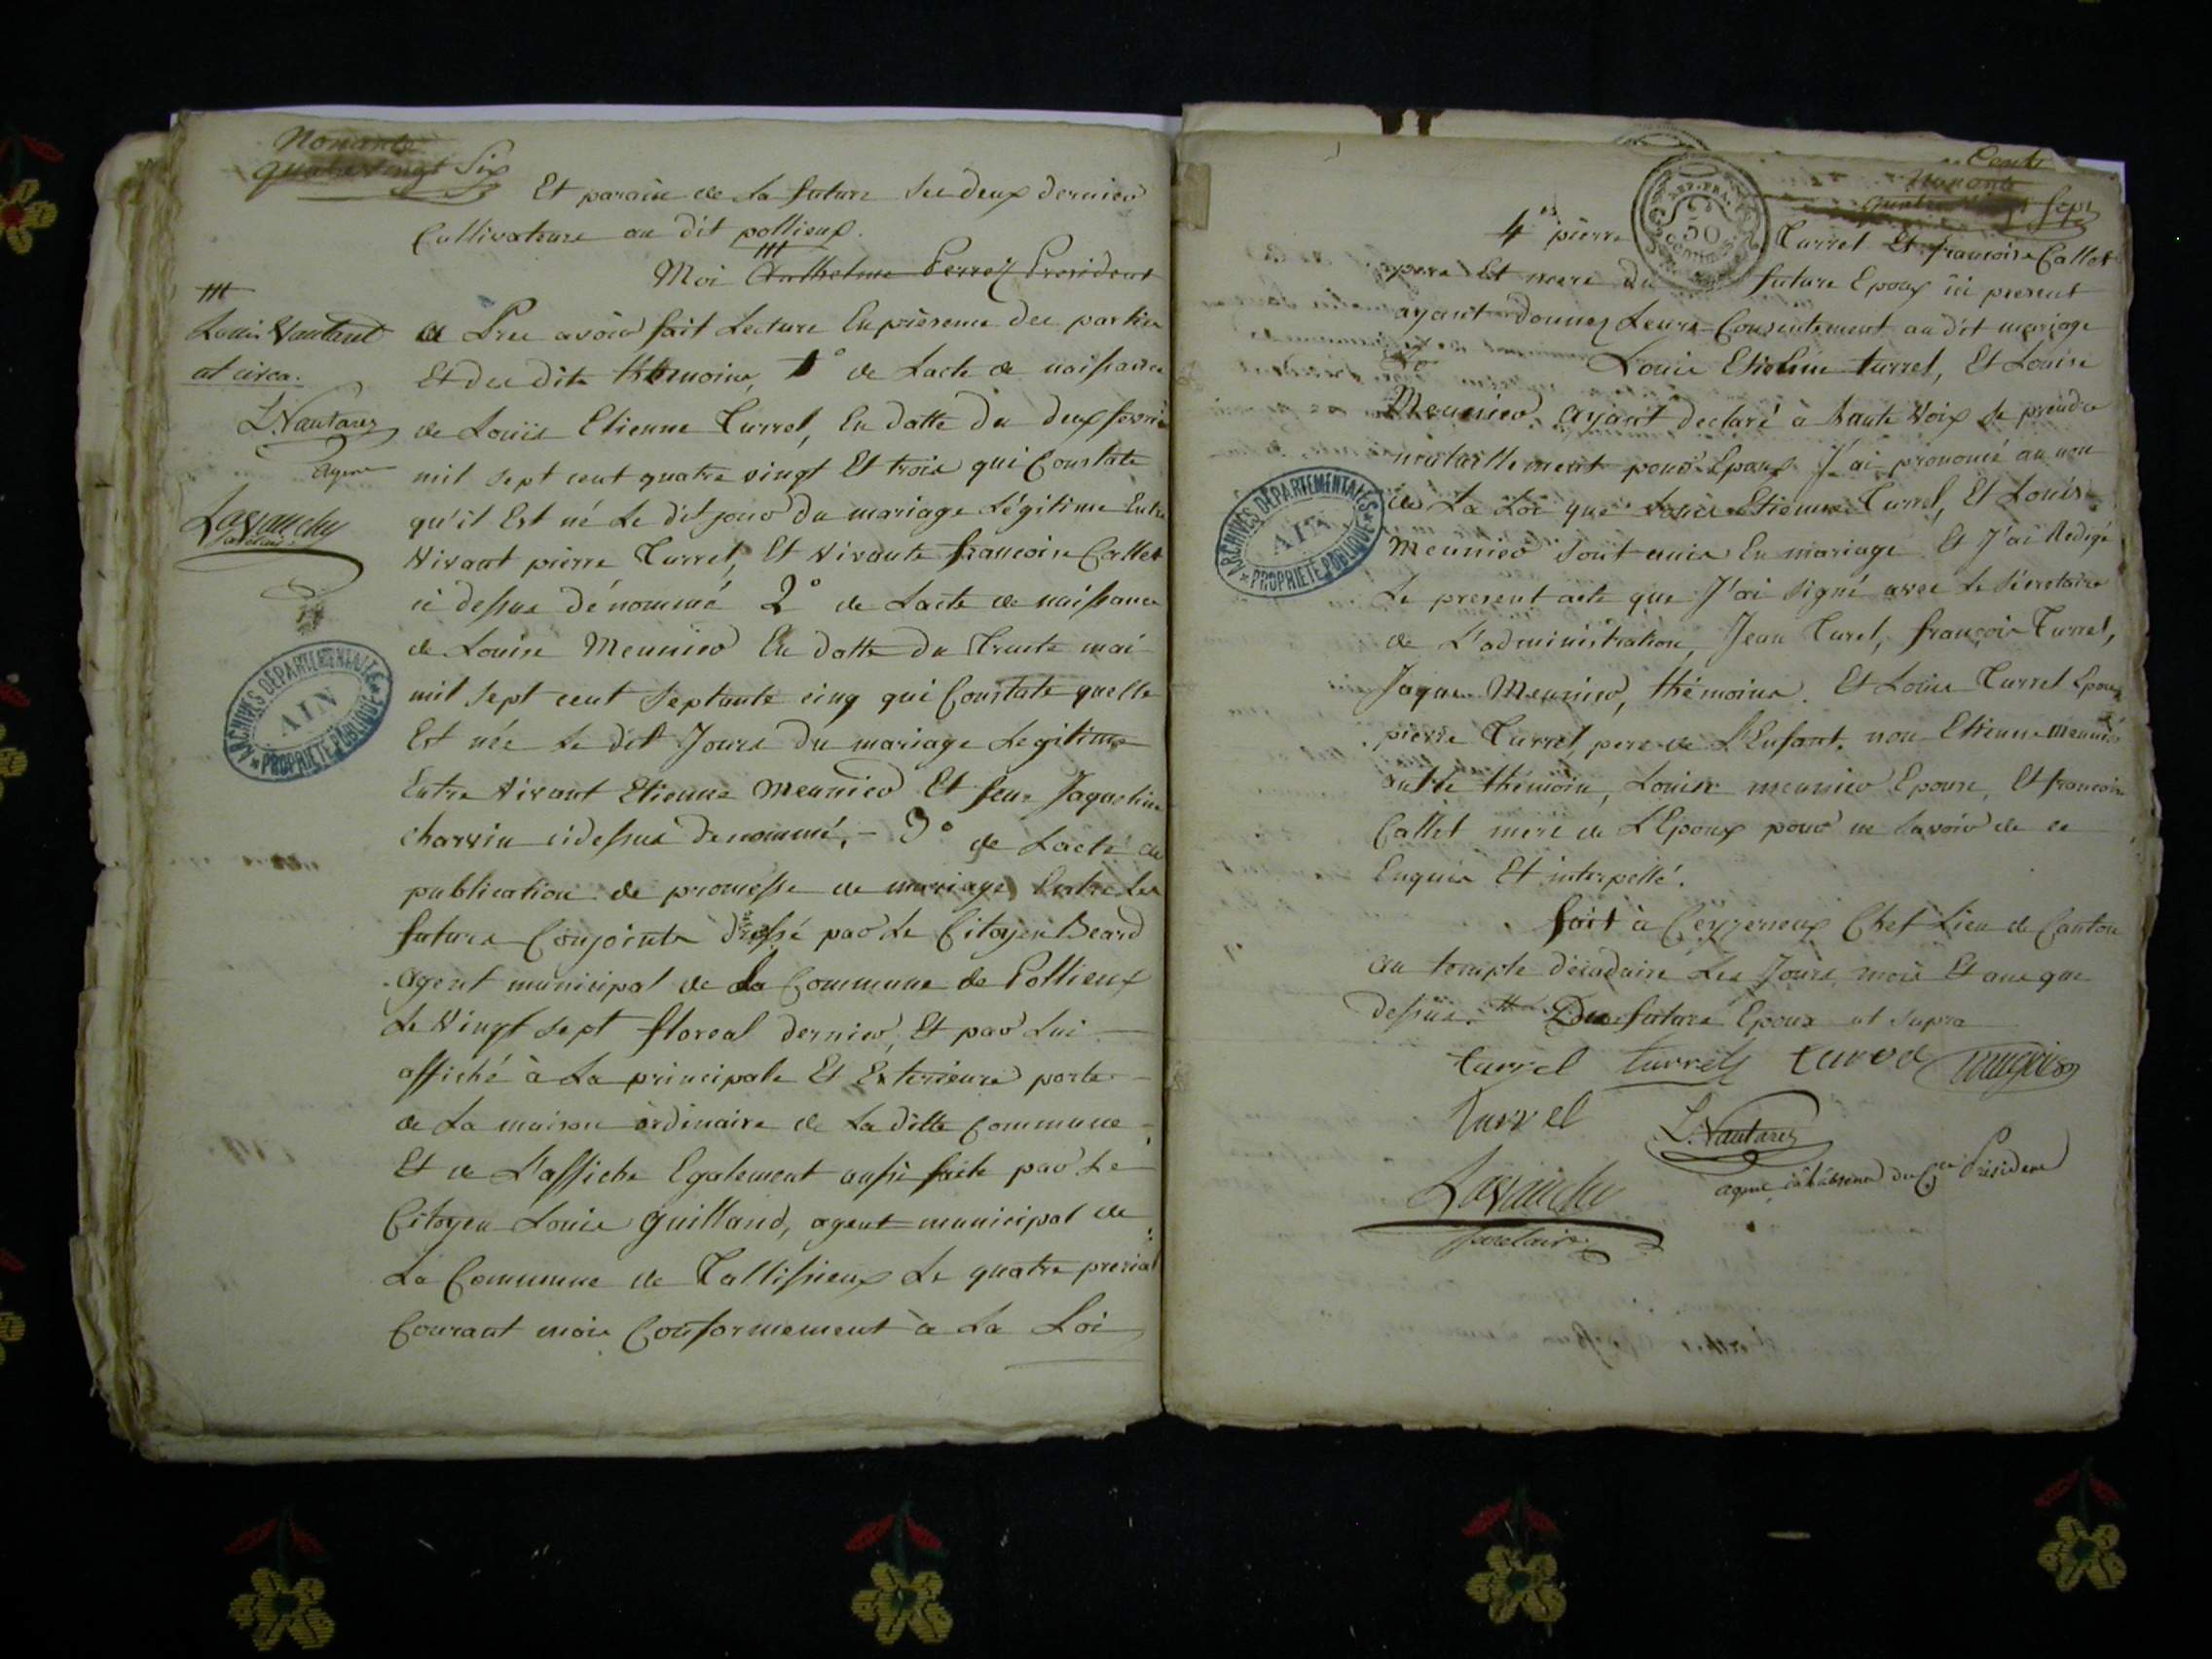 Nonante
quatrevingt Six
Et parain de la future les deux dernier
Cultivateurs au dit pollieux.
Moi Anthelme Perret President
Louis Vautaret
L. Vautaret
agent
Lagranche
Secretaire
avoir fait Lecture En présence des parties
Et des dits thémoins, 1° de Lacte de naissance
de Louis Etienne Turrel, En datte du deux fevrie
mil sept cent quatre vingt Et trois qui Constate
qu'il Est né Le dit jour du mariage Légitime Entre
Vivant pierre Turrel, Et vivante francoise Callet
ci dessus dénommé 2° de Lacte de naissance
de Louise Meunier En datte du Trente mai
mil sept cent septante cinq qui Constate quelle
Est née Le dit Jours du mariage Legitime
Entre vivant Etienne Meunier Et feue Jaqueline
charvin cidessus denommé, - 3° de Lacte de
publication de promesse de mariage Entre Les
futurs Conjoints dressé par Le Citoyen Beard
agent municipal de La Commune de Pollieux
Le Vingt sept floreal dernier, Et par Lui
affiché à La principale Et Exterieure porte
de La maison ordinaire de La ditte Commune
Et de L'affiche Egalement aussi faite par Le
Citoyen Louis guilland, agent municipal de
La Commune de Tallissieux Le quatre prerial
Courant mois Conformement à La Loi
ARCHIVES DÉPARTEMENTALES
AIN
* PROPRIÉTÉ PUBLIQUE *
Nonante
sept
REP. FRA.
50
centimes
4° pierre Turrel Et francoise Callet
pere Et mere du future Epoux ici present
ayant donnez Leurs Consentement au dit mariage
Louis Etienne turrel, Et Louise
Meunier, ayant declaré à haute Voix Se prendre
mutuellement pour Epoux J'ai prononcé au nom
de La Loi que Louis Etienne Turrel, Et Louise
Meunier Sont unis En mariage Et J'ai Redigé
Le present acte que J'ai Signé avec Le Sécretaire
de L'administration, Jean Turel, francois Turrel,
Jaque Meunier, thémoins. Et Louis Turrel Epoux
pierre Turrel, pere de L'Enfant, non Etienne meunier
autre thémoin, Louise meunier Epouse, Et francoise
Callet mere de L'Epoux pour ne Savoir de ce
Enquis Et interpellé.
fait à Ceyzerieux Chef Lieu de Canton
au temple décadaire Les Jours, mois Et ans que
dessus. Du future Epoux ut supra
turrel turrel turel meunier
turrel
L. Vautaret
agent à l'absence du Cen President
Lagranche
Secretaire
ARCHIVES DÉPARTEMENTALES
AIN
* PROPRIÉTÉ PUBLIQUE *